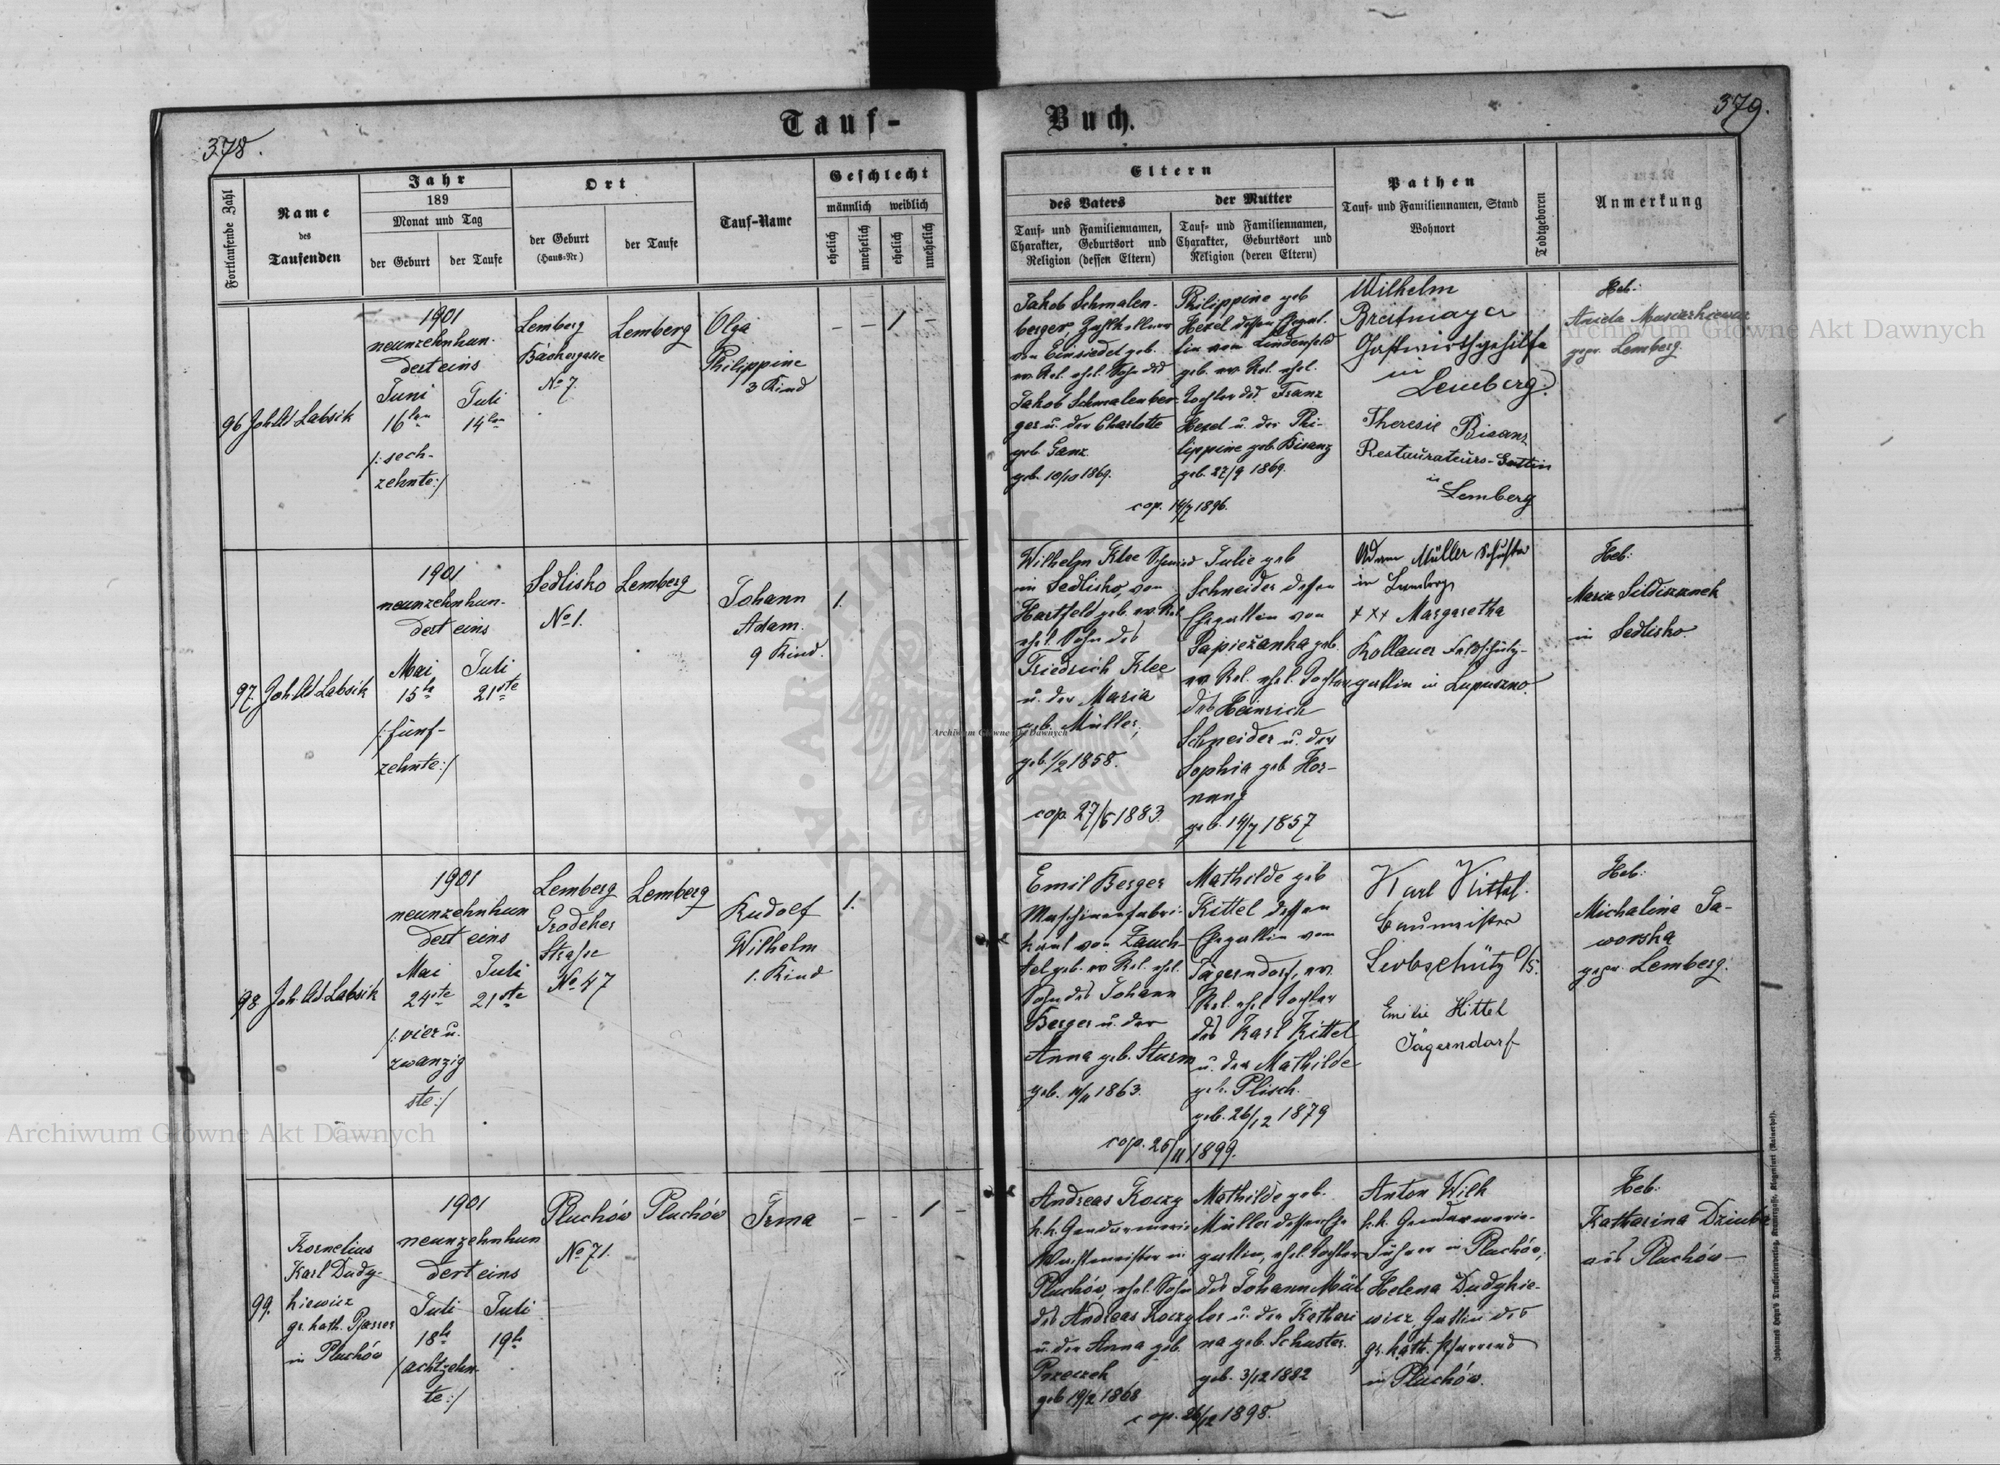 378.
Tauf-
Buch.
379.
Fortlaufende Zahl
Name
des
Taufenden
Jahr
189
Monat und Tag
der Geburt
der Taufe
Ort
der Geburt
(Haus-Nr.)
der Taufe
Tauf-Name
Geschlecht
männlich
weiblich
ehelich
unehelich
ehelich
unehelich
Eltern
des Vaters
Tauf- und Familiennamen,
Charakter, Geburtsort und
Religion (dessen Eltern)
der Mutter
Tauf- und Familiennamen,
Charakter, Geburtsort und
Religion (deren Eltern)
Pathen
Tauf- und Familiennamen, Stand
Wohnort
Todtgeboren
Anmerkung
96
Joh Ad Labsik
1901
neunzehnhun-
dert eins
Juni
16ten
/: sech-
zehnte :/
Juli
14ten
Lemberg
Bäckergasse
No 7.
Lemberg
Olga
Philippine
3 Kind
– – 1 –
Jakob Schmalen-
berger Zahlkellner
von Einsiedel geb.
ev. Rel. ehel. Sohn des
Jakob Schmalenber-
ger u. der Charlotte
geb Ganz
geb. 10/10 1869.
Philippine geb
Hexel dessen Ehegat-
tin von Lindenfeld
geb. ev. Rel. ehel.
Tochter des Franz
Hexel u. der Phi-
lippine geb. Bisanz
geb. 27/9 1869.
cop. 14/7 1896.
Wilhelm
Breitmayer
Gastwirthgehilfe
in
Lemberg.
Theresie Bisanz
Restaurateurs-Gattin
in
Lemberg
Heb:
Aniela
gepr. Lemberg.
97
Joh Ad Labsik
1901
neunzehnhun-
dert eins
Mai
15te
/: fünf-
zehnte :/
Juli
21ste
Sedlisko
No 1.
Lemberg
Johann
Adam.
9 Kind.
1.
Wilhelm Klee Schmied
in Sedlisko, von
Hartfeld geb. ev. Rel.
ehel. Sohn des
Friedrich Klee
u. der Maria
geb. Müller,
geb. 1/2 1858.
cop. 27/5 1883.
Julie geb
Schneider dessen
Ehegattin von
Papieżanka geb.
ev. Rel. ehel. Tochter
des Heinrich
Schneider u. der
Sophia geb Hor-
nung
geb. 14/7 1857
Adam Müller Schuster
in Lemberg
+++ Margaretha
Kollauer Feldschütz-
gattin in Lupuszno.
Heb:
Maria
in Sedlisko.
98
Joh Ad Labsik
1901
neunzehnhun
dert eins
Mai
24ste
/: vier u.
zwanzig
ste :/
Juli
21ste
Lemberg
Grodeker
Strasse
No 47
Lemberg
Rudolf
Wilhelm
1. Kind
1.
Emil Berger
Maschinenfabri-
kant von Zauch-
tel geb. ev Rel. ehel.
Sohn des Johann
Berger u. der
Anna geb. Sturm
geb. 11/11 1863.
Mathilde geb
Kittel dessen
Ehegattin von
Jägerndorf, ev.
Rel. ehel Tochter
des Karl Kittel
u. der Mathilde
geb. Plisch.
geb. 26/12 1879
cop. 25/11 1899.
Karl Kittel.
Baumeister
Leobschütz O/S.
Emilie Kittel
Jägerndorf
Heb:
Michalina Ja-
worska
gepr. Lemberg.
99.
Kornelius
Karl Dudy-
kiewicz
gr. kath. Pfarrer
in Pluchów
1901
neunzehnhun
dert eins
Juli
18te
/: achtzehn-
te :/
Juli
19te
Pluchów
No 71.
Pluchów
Irma
– – 1 –
Andreas Koczy
k.k. Gendarmerie
Wachtmeister in
Pluchów, ehel. Sohn
des Andreas Koczy
u. der Anna geb.
geb 19/2 1868
Mathilde geb.
Müller dessen Ehe
gattin, ehel. Tochter
des Johann Mül
ler u. der Kathari
na geb. Schuster.
geb. 3/12 1882
cop. 26/12 1898.
Anton Wilk
k.k. Gendarmerie-
Führer in Pluchów;
Helena Dudykie-
wicz, Gattin des
gr. kath. Pfarrers
in Pluchów.
Heb:
Katharina Dziuba
aus Pluchów
Archiwum Główne Akt Dawnych
Archiwum Główne Akt Dawnych
Archiwum Główne Akt Dawnych